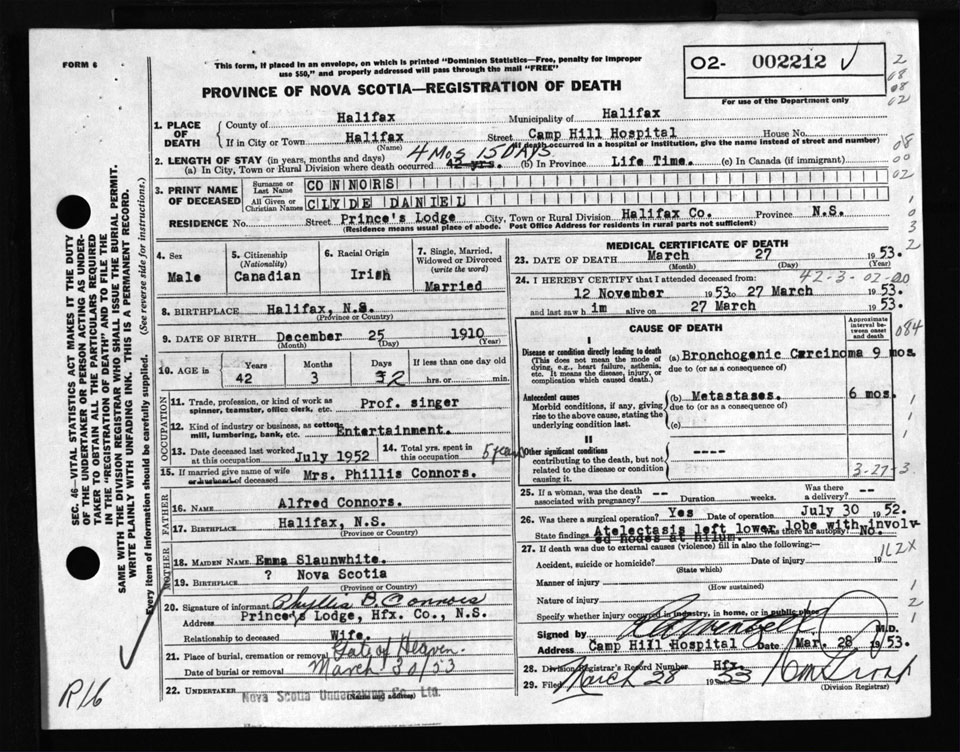 FORM 6
This form, if placed in an envelope, on which is printed "Dominion Statistics—Free, penalty for improper
use $50," and properly addressed will pass through the mail "FREE"
O2- 002212
For use of the Department only
PROVINCE OF NOVA SCOTIA—REGISTRATION OF DEATH
1. PLACE OF DEATH
County of Halifax Municipality of Halifax
If in City or Town Halifax Street Camp Hill Hospital House No.
(Name) (If death occurred in a hospital or institution, give the name instead of street and number)
2. LENGTH OF STAY (in years, months and days) 4 Mos 15 DAYS
(a) In City, Town or Rural Division where death occurred 42 yrs. (b) In Province Life Time. (c) In Canada (if immigrant)
3. PRINT NAME OF DECEASED
Surname or Last Name CONNORS
All Given or Christian Names CLYDE DANIEL
RESIDENCE No. Street Prince's Lodge City, Town or Rural Division Halifax Co. Province N.S.
(Residence means usual place of abode. Post Office Address for residents in rural parts not sufficient)
4. Sex Male
5. Citizenship (Nationality) Canadian
6. Racial Origin Irish
7. Single, Married, Widowed or Divorced (write the word) Married
8. BIRTHPLACE Halifax, N.S.
(Province or Country)
9. DATE OF BIRTH December 25 1910
(Month) (Day) (Year)
10. AGE in Years Months Days If less than one day old
42 3 2 hrs. or min.
OCCUPATION
11. Trade, profession, or kind of work as spinner, teamster, office clerk, etc. Prof. singer
12. Kind of industry or business, as cotton mill, lumbering, bank, etc. Entertainment.
13. Date deceased last worked at this occupation July 1952
14. Total yrs. spent in this occupation 5 years
15. If married give name of wife or husband of deceased Mrs. Phillis Connors.
FATHER
16. Name Alfred Connors.
17. Birthplace Halifax, N.S.
(Province or Country)
MOTHER
18. Maiden Name Emma Slaunwhite.
19. Birthplace ? Nova Scotia
(Province or Country)
20. Signature of informant Phyllis B. Connors
Address Prince's Lodge, Hfx. Co., N.S.
Relationship to deceased Wife.
21. Place of burial, cremation or removal Gate of Heaven.
Date of burial or removal March 30/53
22. UNDERTAKER Nova Scotia Undertaking Co. Ltd.
(Name and address)
MEDICAL CERTIFICATE OF DEATH
23. DATE OF DEATH March 27 1953.
(Month) (Day) (Year)
24. I HEREBY CERTIFY that I attended deceased from: 42-3-02-00
12 November 1953 to 27 March 1953.
and last saw him alive on 27 March 1953.
CAUSE OF DEATH
Approximate interval between onset and death
084
I
Disease or condition directly leading to death
(This does not mean the mode of dying, e.g., heart failure, asthenia, etc. It means the disease, injury, or complication which caused death.)
(a) Bronchogenic Carcinoma 9 mos.
due to (or as a consequence of)
Antecedent causes
Morbid conditions, if any, giving rise to the above cause, stating the underlying condition last.
(b) Metastases. 6 mos.
due to (or as a consequence of)
(c)
II
Other significant conditions
contributing to the death, but not related to the disease or condition causing it.
----
3-27-3
25. If a woman, was the death associated with pregnancy? -- Duration weeks. Was there a delivery? --
26. Was there surgical operation? Yes Date of operation July 30 1952.
State findings Atelectasis left lower lobe with involved nodes at hilum. Was there an autopsy? No.
27. If death was due to external causes (violence) fill in also the following:—
162X
Accident, suicide or homicide? Date of injury 19
(State which)
Manner of injury
(How sustained)
Nature of injury
Specify whether injury occurred in industry, in home, or in public place
Signed by M.D.
Address Camp Hill Hospital Date Mar. 28 1953.
28. Division Registrar's Record Number Hfx.
29. Filed March 28 1953
(Division Registrar)
SEC. 46—VITAL STATISTICS ACT MAKES IT THE DUTY
OF THE UNDERTAKER OR PERSON ACTING AS UNDER-
TAKER TO OBTAIN ALL THE PARTICULARS REQUIRED
IN THE "REGISTRATION OF DEATH" AND TO FILE THE
SAME WITH THE DIVISION REGISTRAR WHO SHALL ISSUE THE BURIAL PERMIT.
WRITE PLAINLY WITH UNFADING INK. THIS IS A PERMANENT RECORD.
Every item of information should be carefully supplied. (See reverse side for instructions.)
R16